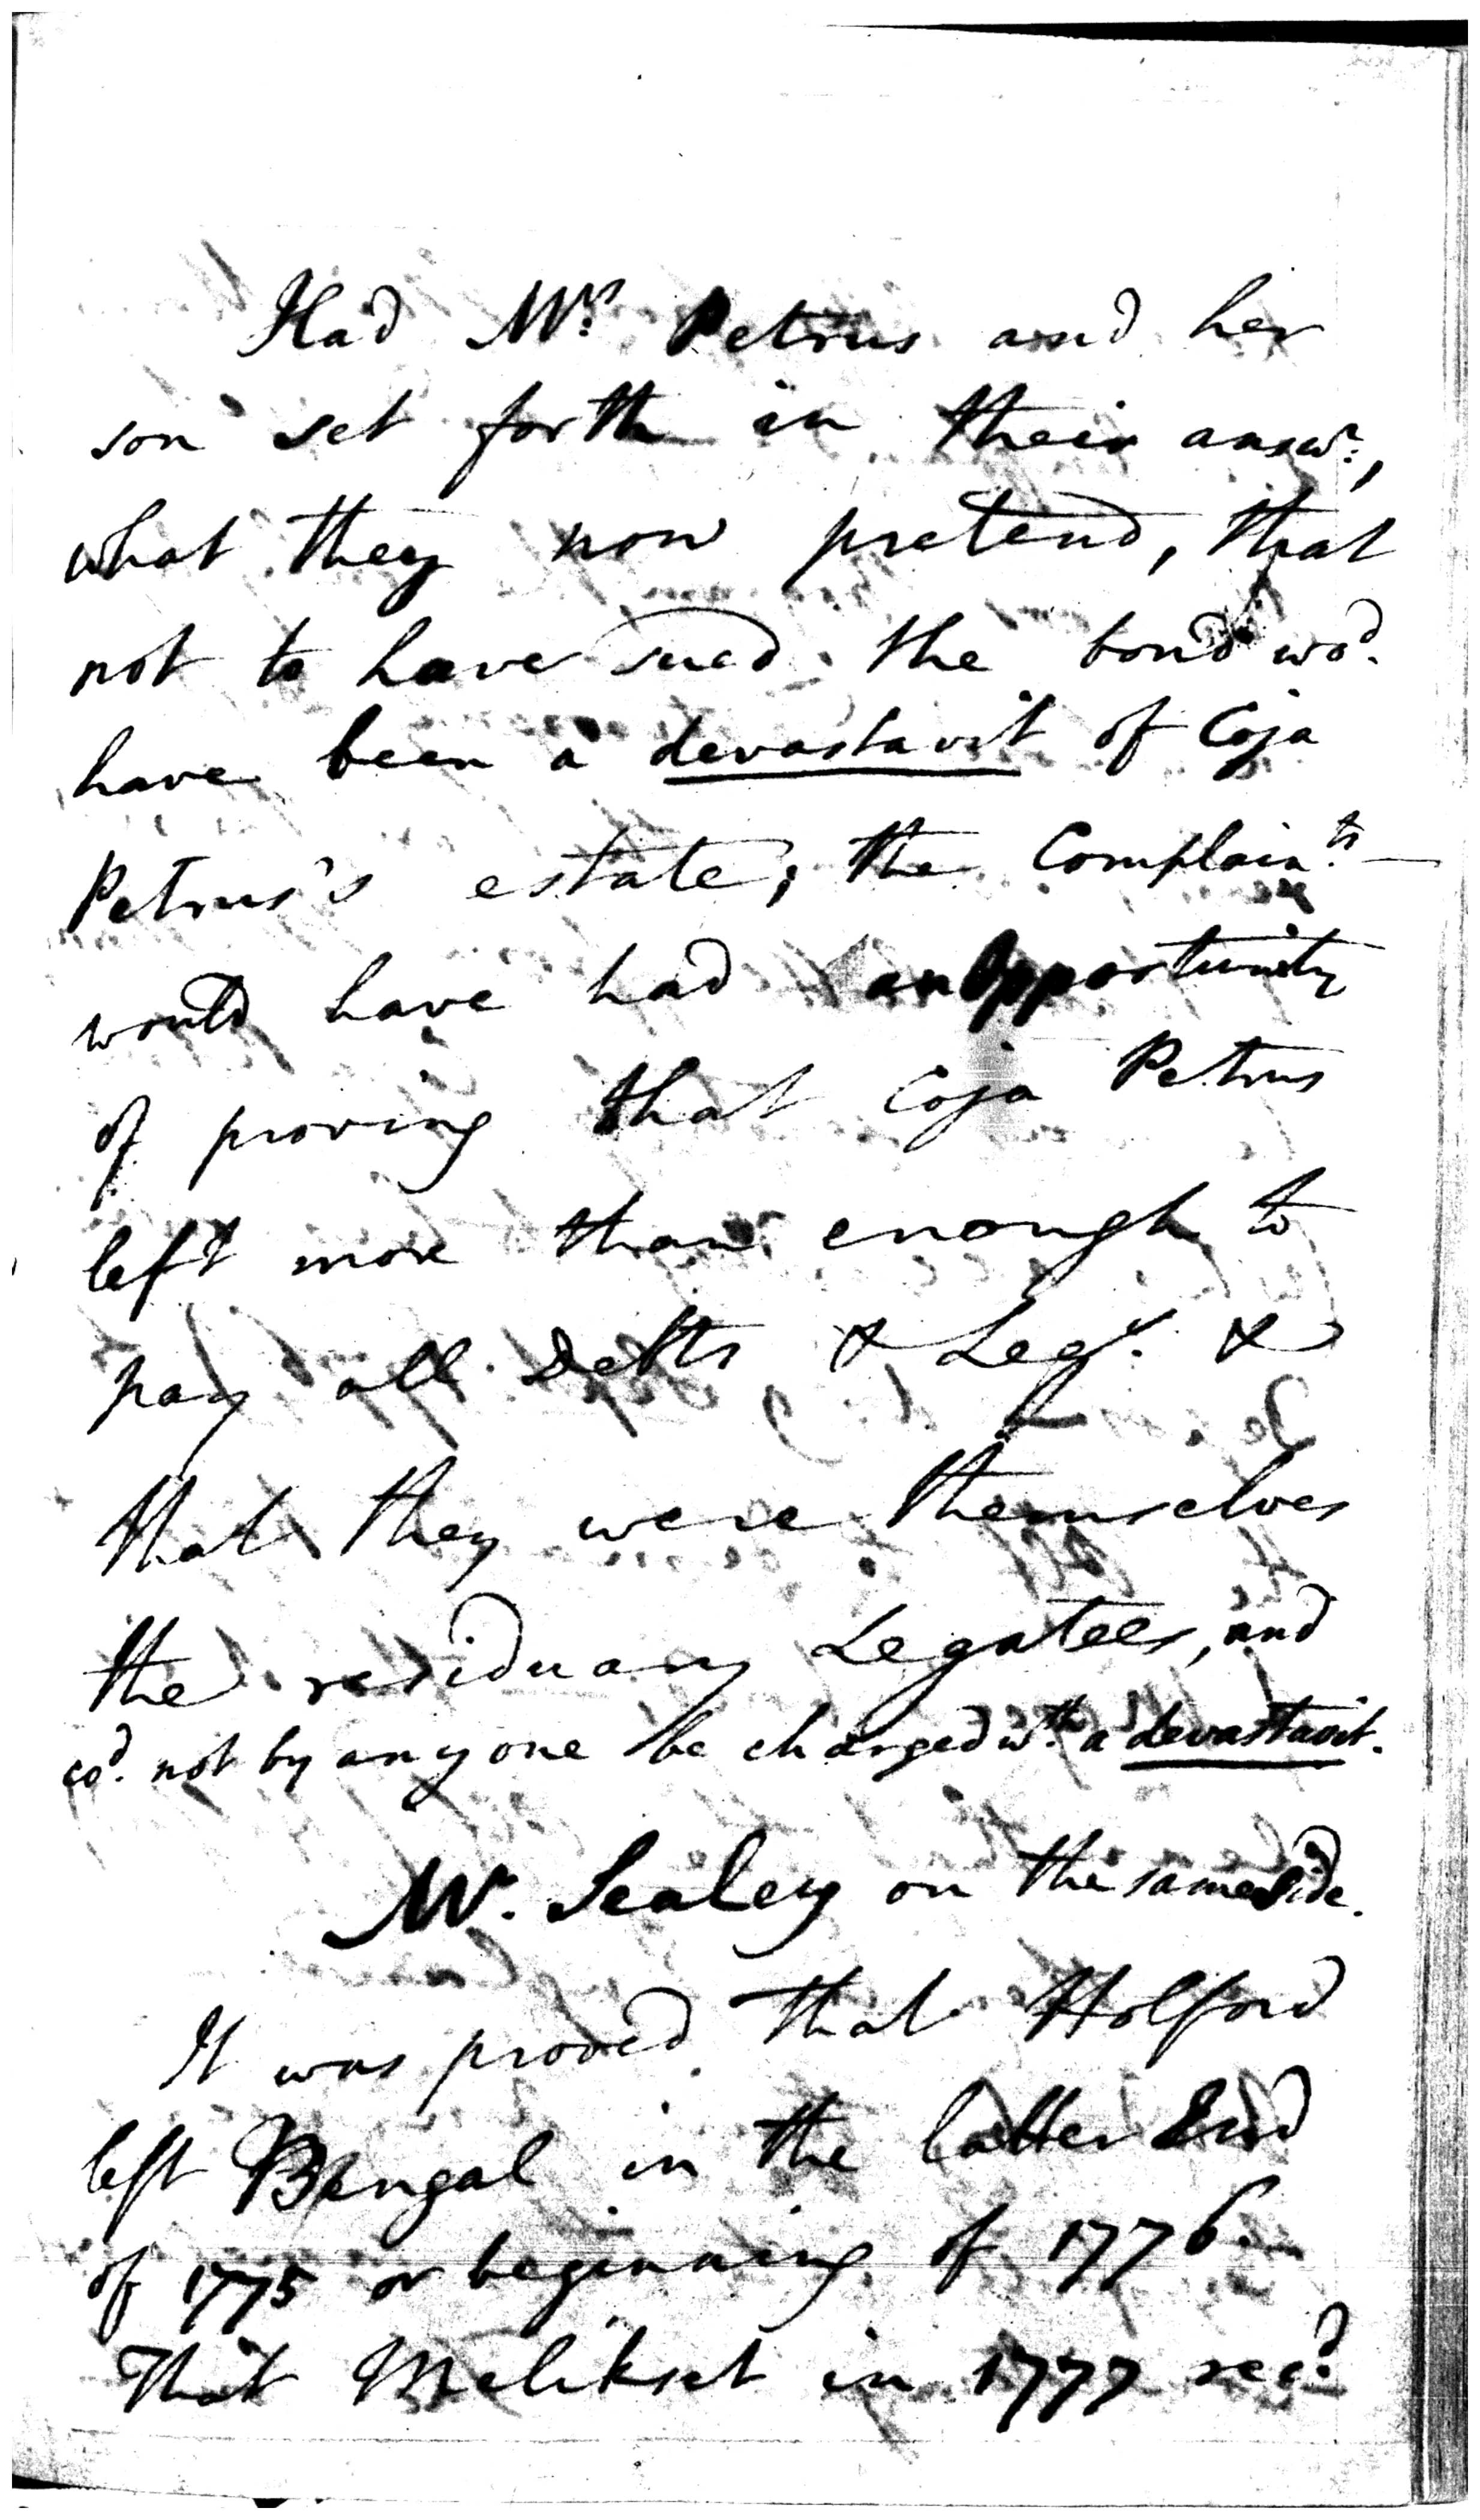 Had Mrs. Petrus and her
son set forth in their answr.,
what they now pretend, that
not to have sued the bond wod.
have been a devastavit of Coja
Petrus's estate; the Complaints. —
would have had an opportunity
of proving that Coja Petrus
left more than enough to
pay all Debts & Legs. &
that they were themselves
the residuary Legatees, and
cod. not by any one be charged wth. a devastavit.
Mr. Sealey on the same side.
It was proved that Holford
left Bengal in the latter End
of 1775 or beginning of 1776.
That Melikset in 1777 recd.